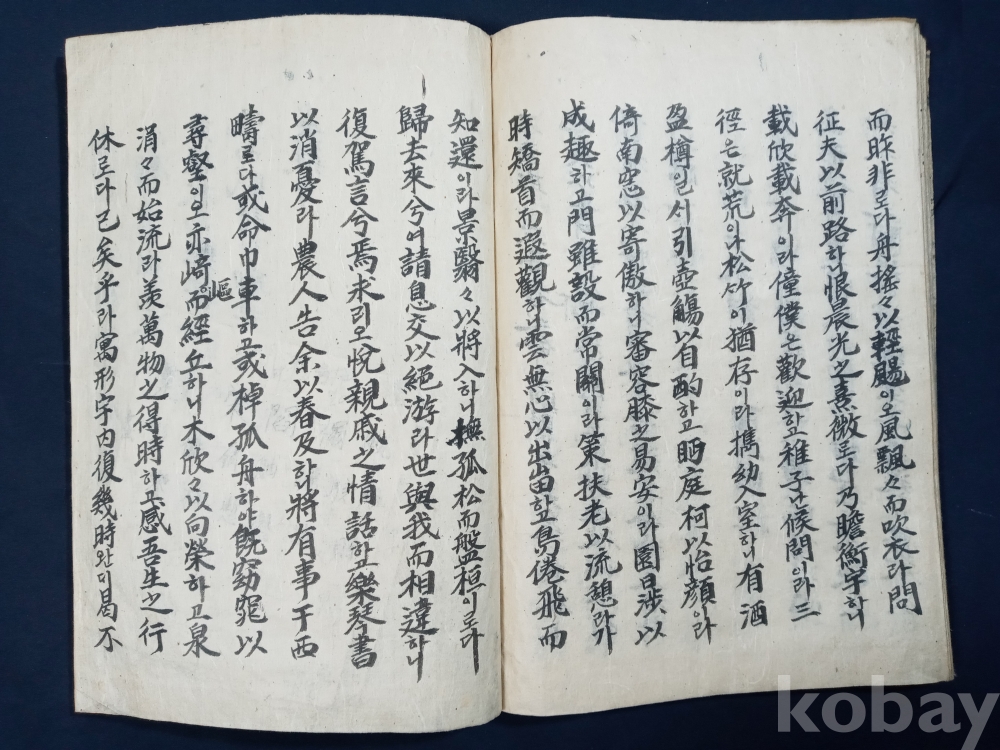 而昨非로다舟搖々以輕颺이오風飄々而吹衣라問
征夫以前路하니恨晨光之熹微로다乃瞻衡宇하니
載欣載奔이라僮僕은歡迎하고稚子난候問이라三
徑은就荒이나松竹이猶存이라携幼入室하니有酒
盈樽일시引壺觴以自酌하고眄庭柯以怡顔이라
倚南窓以寄傲하니審容膝之易安이라園日涉以
成趣라고門雖設而常關이라策扶老以流憩라가
時矯首而遐觀하니雲無心以出岫하고鳥倦飛而
知還이라景翳々以將入하니撫孤松而盤桓이로다
歸去來兮여請息交以絕游라世與我而相違하니
復駕言兮焉求리오悅親戚之情話하고樂琴書
以消憂라農人告余以春及하니將有事于西
疇로다或命巾車하고或棹孤舟하야旣窈窕以
尋壑이오亦崎嶇而經丘하니木欣々以向榮하고泉
涓々而始流라羨萬物之得時하고感吾生之行
休로다已矣乎라寓形宇內復幾時완대曷不
kobay